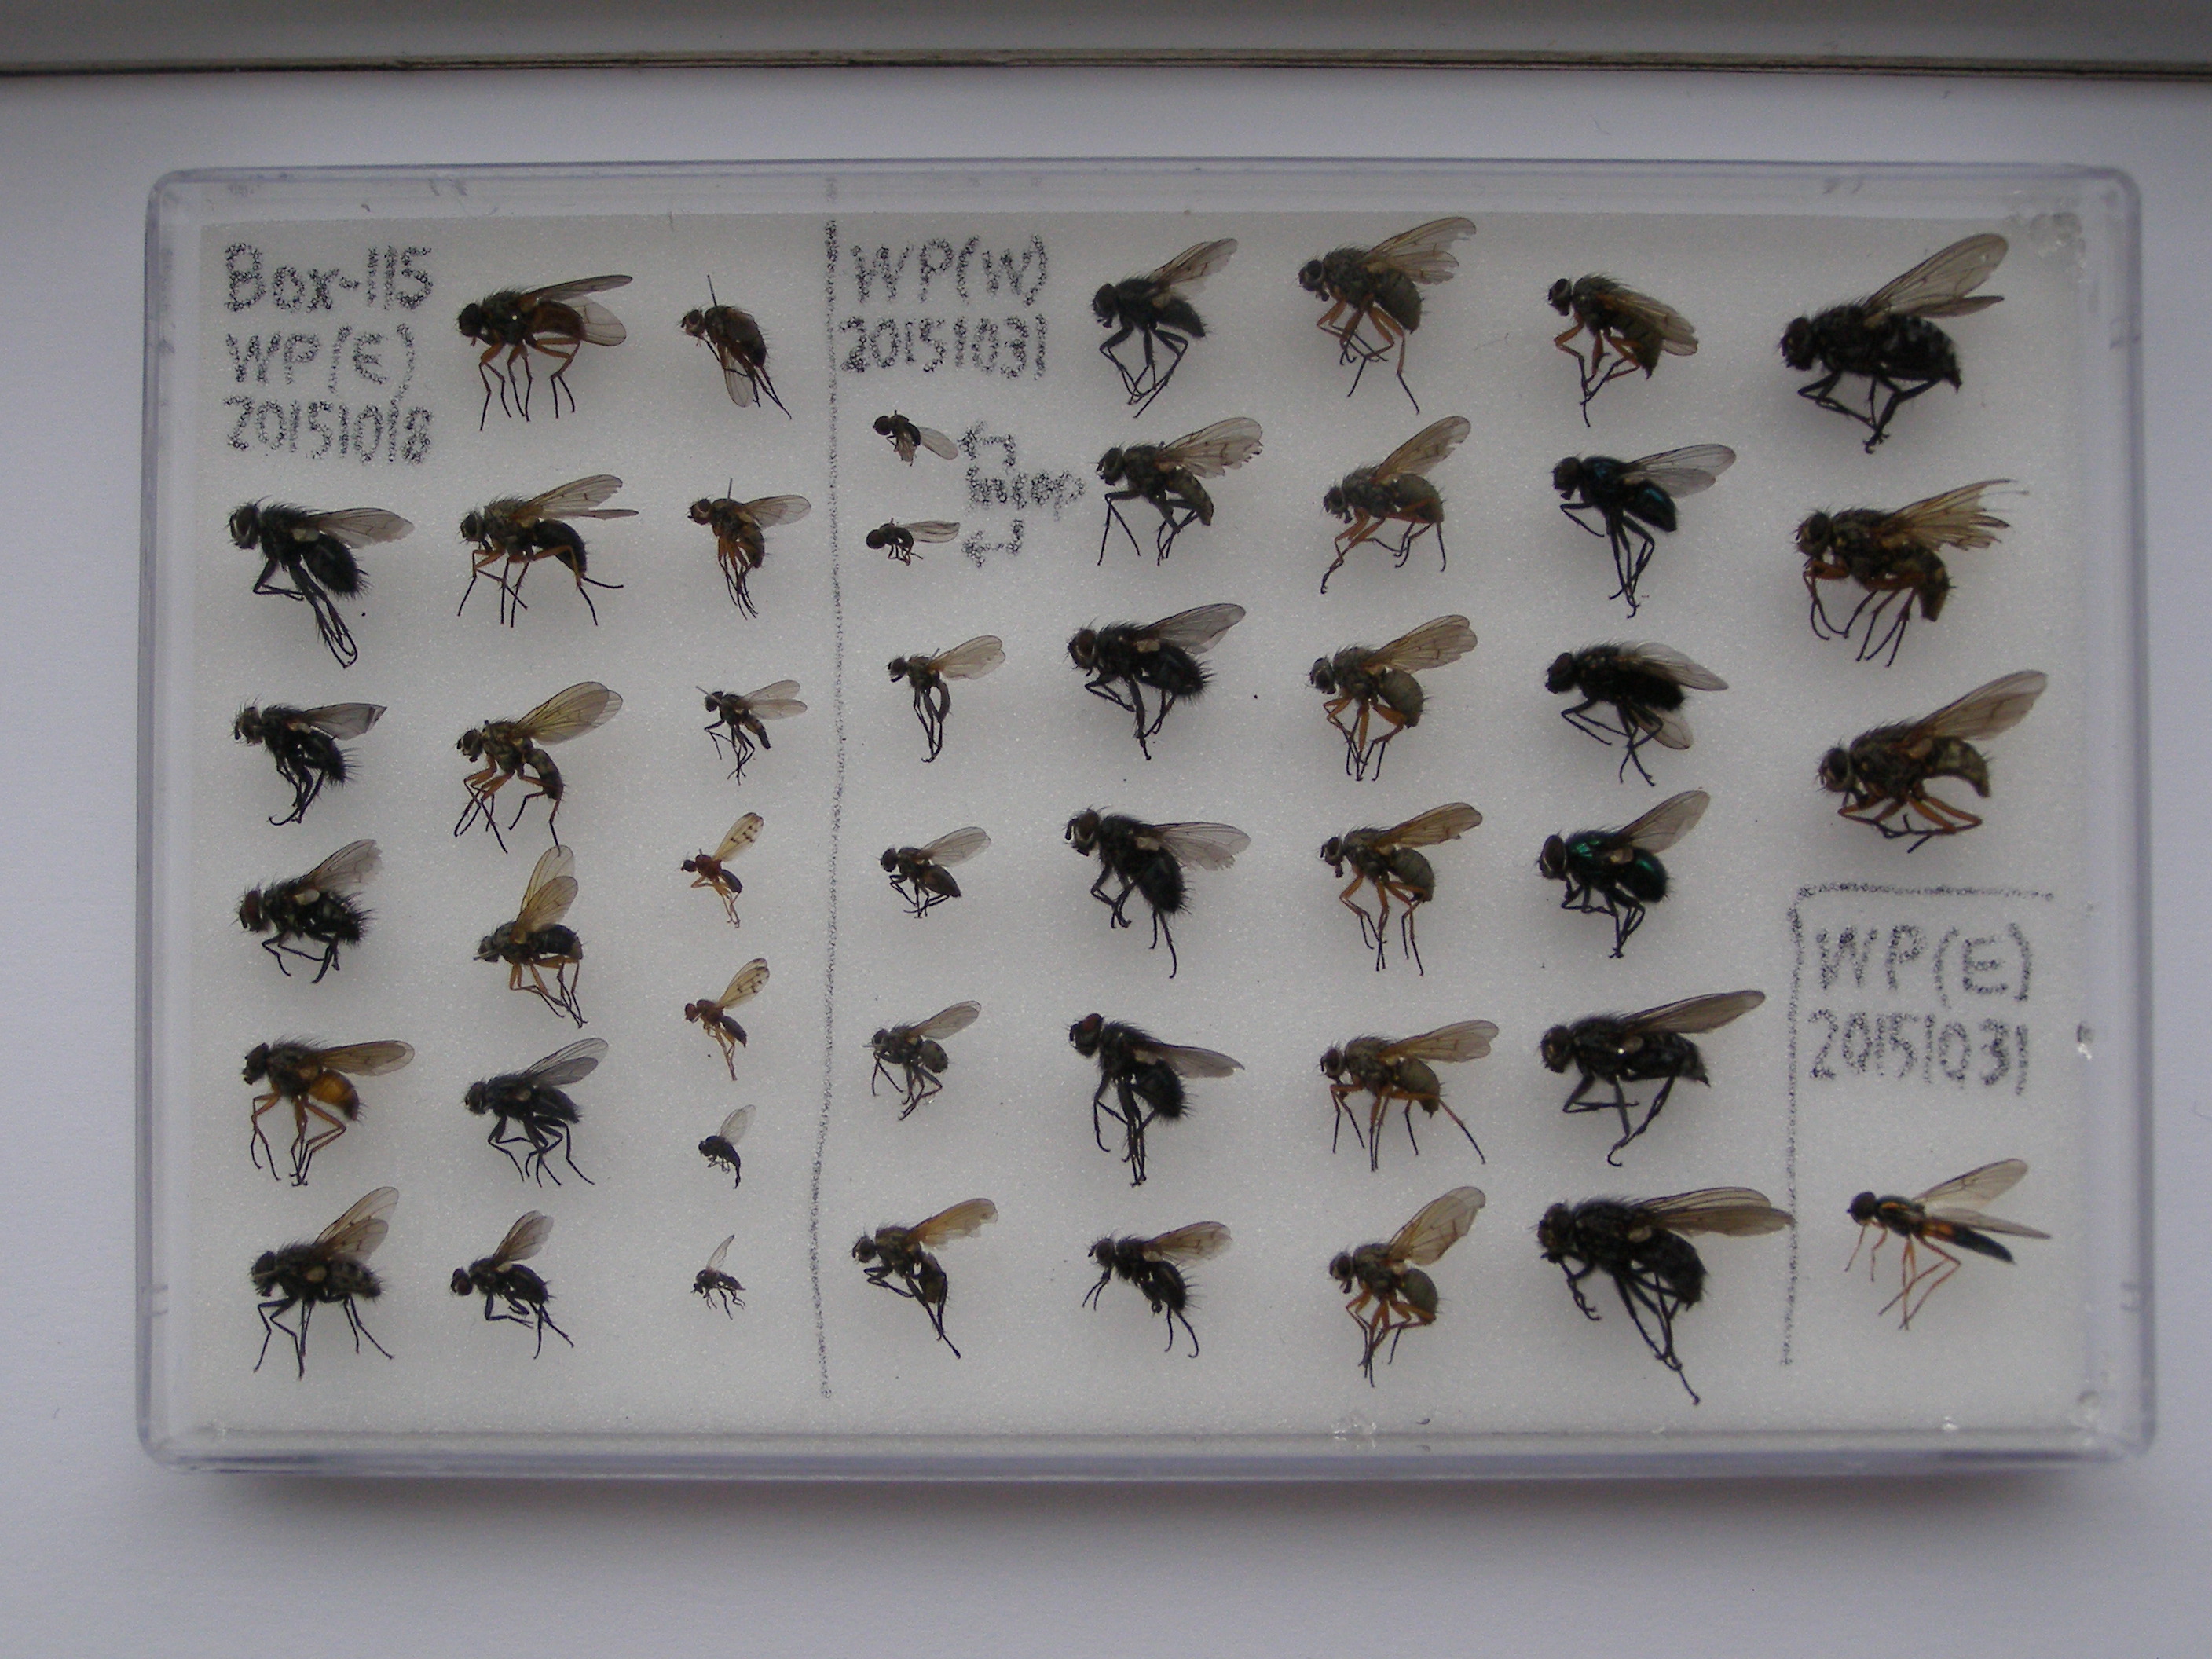 Box-115
WP(E)
20151018
WP(W)
20151031
WP(E)
20151031